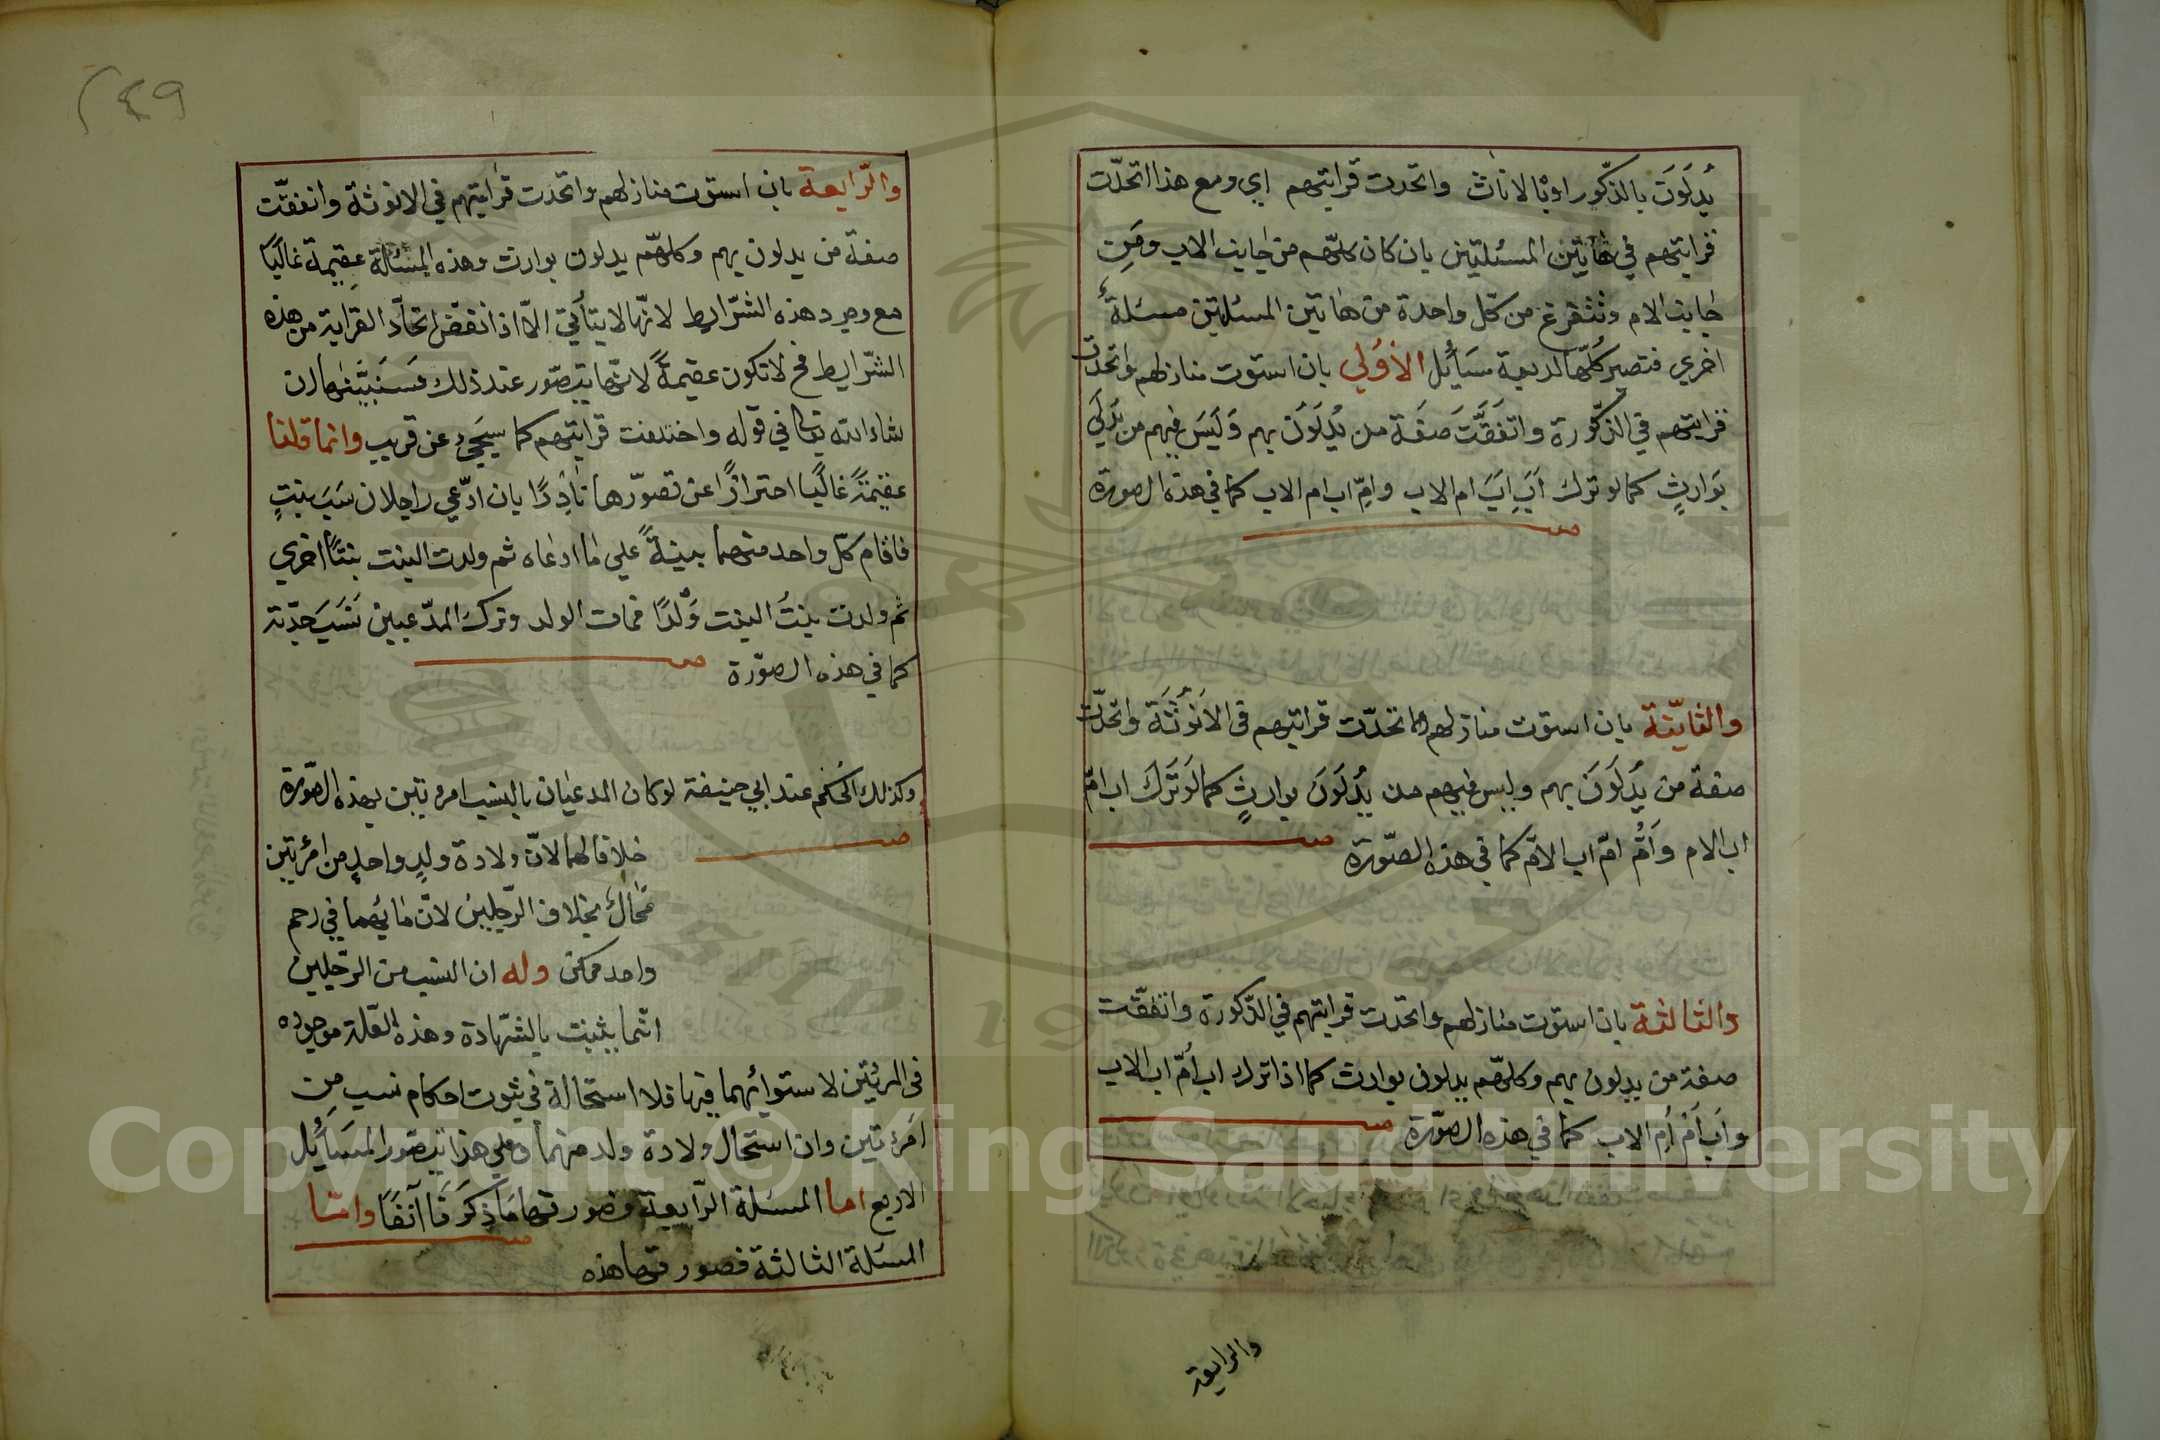 يُدلَونَ بالذكور اوبالاناث واتحدت قرابتهم اي ومع هذا اتحدّت
قرابتهم في هاتين المسئلتين بان كان كلهم من جانب الاب ومن
جانب الام وتتفرغ من كل واحدة من هاتين المسئلتين مسئلة
اخري فتصير كلّها اربعة مسَائل الأولي بان استوت منازلهم واتحدت
قرابتهم في الذكورة واتفقت صفة من يُدلَون بهم وَليسَ فيهم من يدلي
بوارثٍ كما لو ترك اَبَ ابَ ام الاب وامّ اب ام الاب كما في هذه الصورة
والثانية بان استوت منازلهم واتحدّت قرابتهم في الانوثة واتحدت
صفة من يُدلَونَ بهم وليس فيهم من يُدلَونَ بوارثٍ كما لو تَركَ اب امّ
اب الام وَامُّ امّ اب الام كما في هذه الصّورة
والثالثة بان استوت منازلهم واتحدت قرابتهم في الذكورة واتفقت
صفة من يدلون بهم وكلهم يدلون بوارث كما اذا ترك اب اُمّ اب الاب
واَب اَم اَم الاب كما في هذه الصّورة
والرابعة
249
والرّابعة بان استوت منازلهم واتحدت قرابتهم في الانوثة واتفقت
صفة من يدلون بهم وكلهم يدلون بوارث وهذه المسئلة عقيمة غالبًا
مع وجود هذه الشرايط لانها لا يتأتي الّا اذا نقض اتحاد القرابة من هذه
الشرايط فح لا تكون عقيمةً لانها يتصوّر عند ذلك فسنبيّنها ان
شاء الله تعالي في قوله واختلفت قرابتهم كما سيَجئ عن قريب وانما قلنا
عقيمةً غالبًا احترازًا عن تصوّرها نادرًا بان ادّعي راجلان نسَبَ بنتٍ
فاقام كل واحد منهما بينةً علي ما ادعاه ثم ولدت البنت بنتًا اخري
ثم ولدت بنتُ البنت وَلدًا فمات الولد وترك المدّعيين نسَبَ جدّته
كما في هذه الصّورة
وكذلك الحُكم عند ابي حنيفة لو كان المدعيان بالنسب امرءتين بهذه الصّورة
خلافا لهما لانّ ولادة ولدٍ واحدٍ من امرءتين
محالٌ بخلاف الرّجلين لانّ مائهما في رحم
واحد ممكن وله ان النسب من الرّجلين
انّما يثبت بالشّهادة وهذه العلة موجوده
في المرءتين لاستوائهما فيها فلا استحالة في ثبوت احكام نسب مِن
امرءتين وان استحال ولادة ولد منهما وعلي هذا يتصور المسَائل
الاربع اما المسئلة الرّابعة فصورتها مَا ذكرَنَا آنفًا وامّا
المسئلة الثالثة فصورتها هذه
Copyright © King Saud University